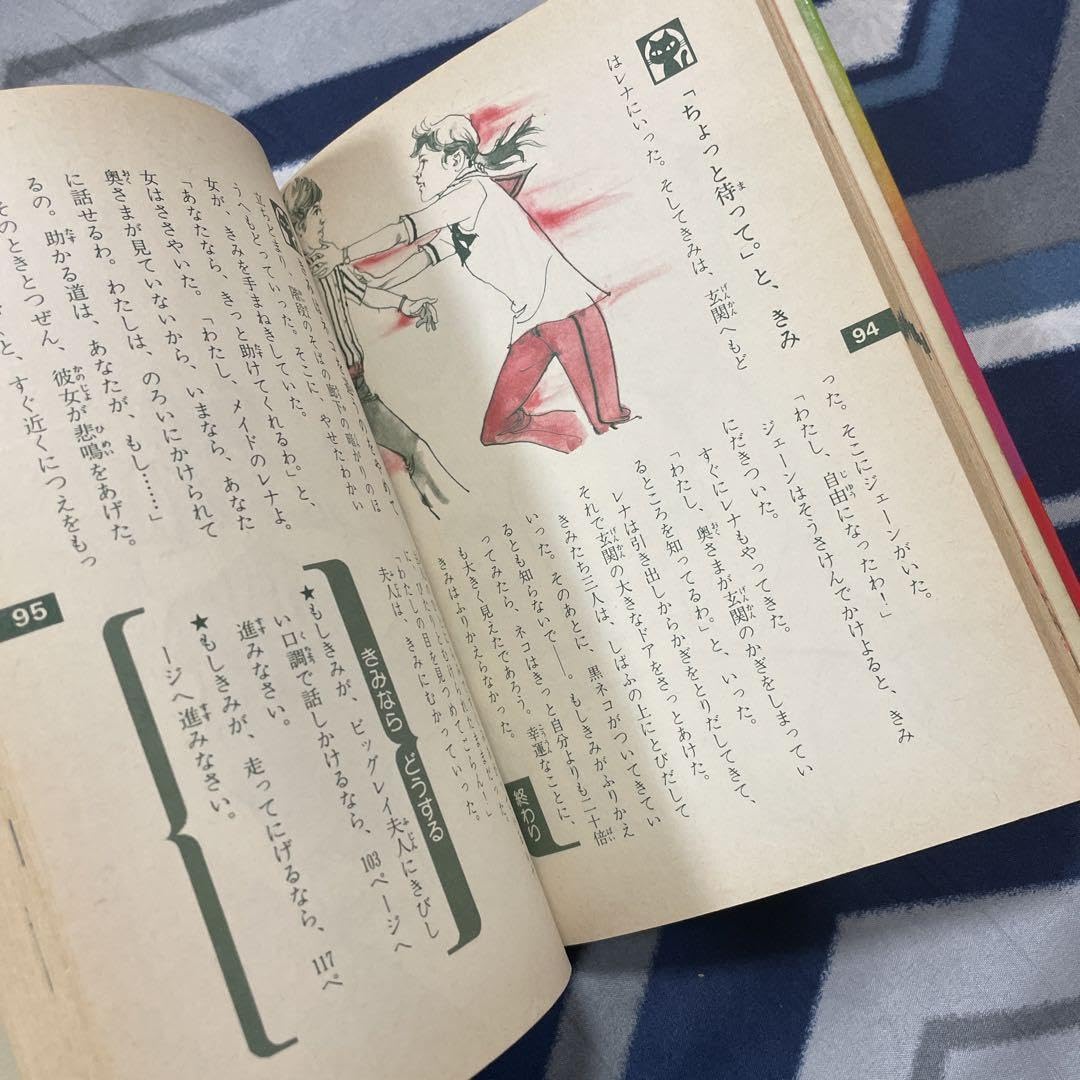 94
「ちょっと待って。」と、きみ
はレナにいった。そしてきみは、玄関へもど
った。そこにジェーンがいた。
「わたし、自由になったわ！」
ジェーンはそうさけんでかけよると、きみ
にだきついた。
すぐにレナもやってきた。
「わたし、奥さまが玄関のかぎをしまってい
るところを知ってるわ。」と、いった。
レナは引き出しからかぎをとりだしてきて、
それで玄関の大きなドアをさっとあけた。
きみたち三人は、しばふの上にとびだして
いった。そのあとに、黒ネコがついてきてい
るとも知らないで——。もしきみがふりかえ
ってみたら、ネコはきっと自分よりも二十倍
も大きく見えたであろう。幸運なことに、
きみはふりかえらなかった。
終わり
立ちどまり、階段のそばの廊下の暗がりのほ
うへもどっていった。そこに、やせたわかい
女が、きみを手まねきしていた。
「あなたなら、きっと助けてくれるわ。」と、
女はささやいた。「わたし、メイドのレナよ。
奥さまが見ていないから、いまなら、あなた
に話せるわ。わたしは、のろいにかけられて
るの。助かる道は、あなたが、もし……」
そのときとつぜん、彼女が悲鳴をあげた。
と、すぐ近くにつえをもっ
「わたしの目を見つめてごらん！」
夫人は、きみにむかっていった。
きみなら どうする
★もしきみが、ビッグレイ夫人にきびし
い口調で話しかけるなら、103ページへ
進みなさい。
★もしきみが、走ってにげるなら、117ペ
ージへ進みなさい。
95